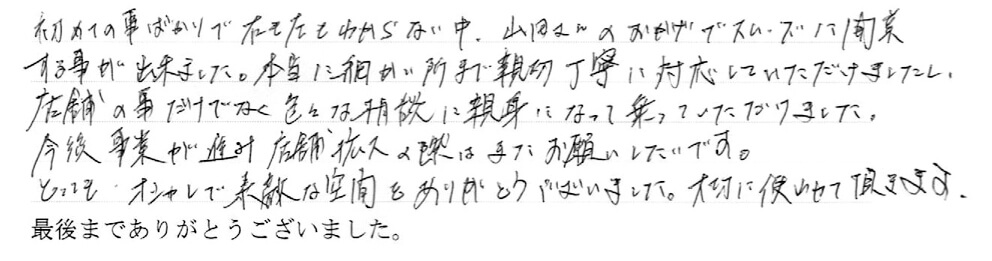 初めての事ばかりで右も左もわからない中、山田さんのおかげでスムーズに開業
する事が出来ました。本当に細かい所まで親切丁寧に対応していただけましたし、
店舗の事だけでなく色々な相談に親身になって乗っていただけました。
今後事業が進み店舗拡大の際はまたお願いしたいです。
とっても オシャレで素敵な空間をありがとうございました。大切に使わせて頂きます。
最後までありがとうございました。